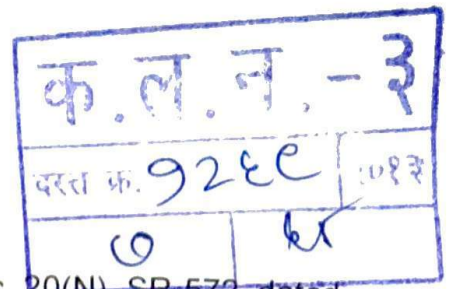 क.ल.न. - ३
दस्त क्र. १२६९ २०१३
७
20(N) SR 572 dated